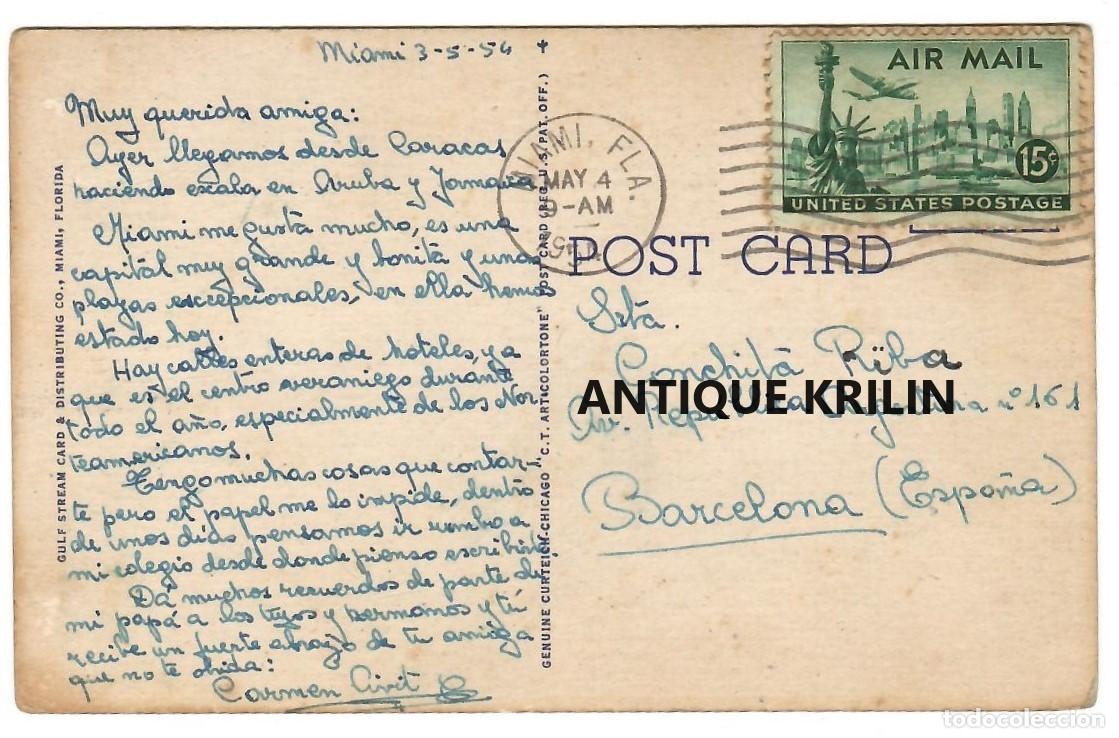 Miami 3-5-54
Muy querida amiga:
Ayer llegamos desde Caracas
haciendo escala en Aruba y Jamaica
Miami me gusta mucho, es una
capital muy grande y bonita y unas
plazas excepcionales, en ella hemos
estado hoy.
Hay calles enteras de hoteles, ya
que es el centro veraniego durante
todo el año, especialmente de los Nor-
teamericanos.
Tengo muchas cosas que contar-
te pero el papel me lo impide, dentro
de unos días pensamos ir rumbo a
mi colegio desde donde pienso escribirte
Dá muchos recuerdos de parte de
mi papá a los tuyos y hermanos y tú
recibe un fuerte abrazo de tu amiga
que no te olvida:
Carmen Civit
GULF STREAM CARD & DISTRIBUTING CO., MIAMI, FLORIDA
GENUINE CURTEICH-CHICAGO "C.T. ART-COLORTONE" POST CARD (REG. U.S. PAT. OFF.)
MIAMI, FLA.
MAY 4
9-AM
AIR MAIL
15¢
UNITED STATES POSTAGE
POST CARD
Srta.
Conchita Riba
ANTIQUE KRILIN
Av. República Argentina nº 161
Barcelona (España)
todocoleccion